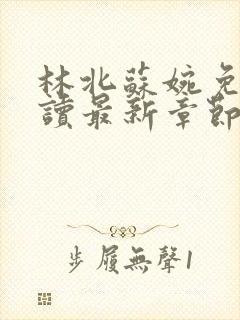 林北蘇婉免
讀最新章節
步履無聲1